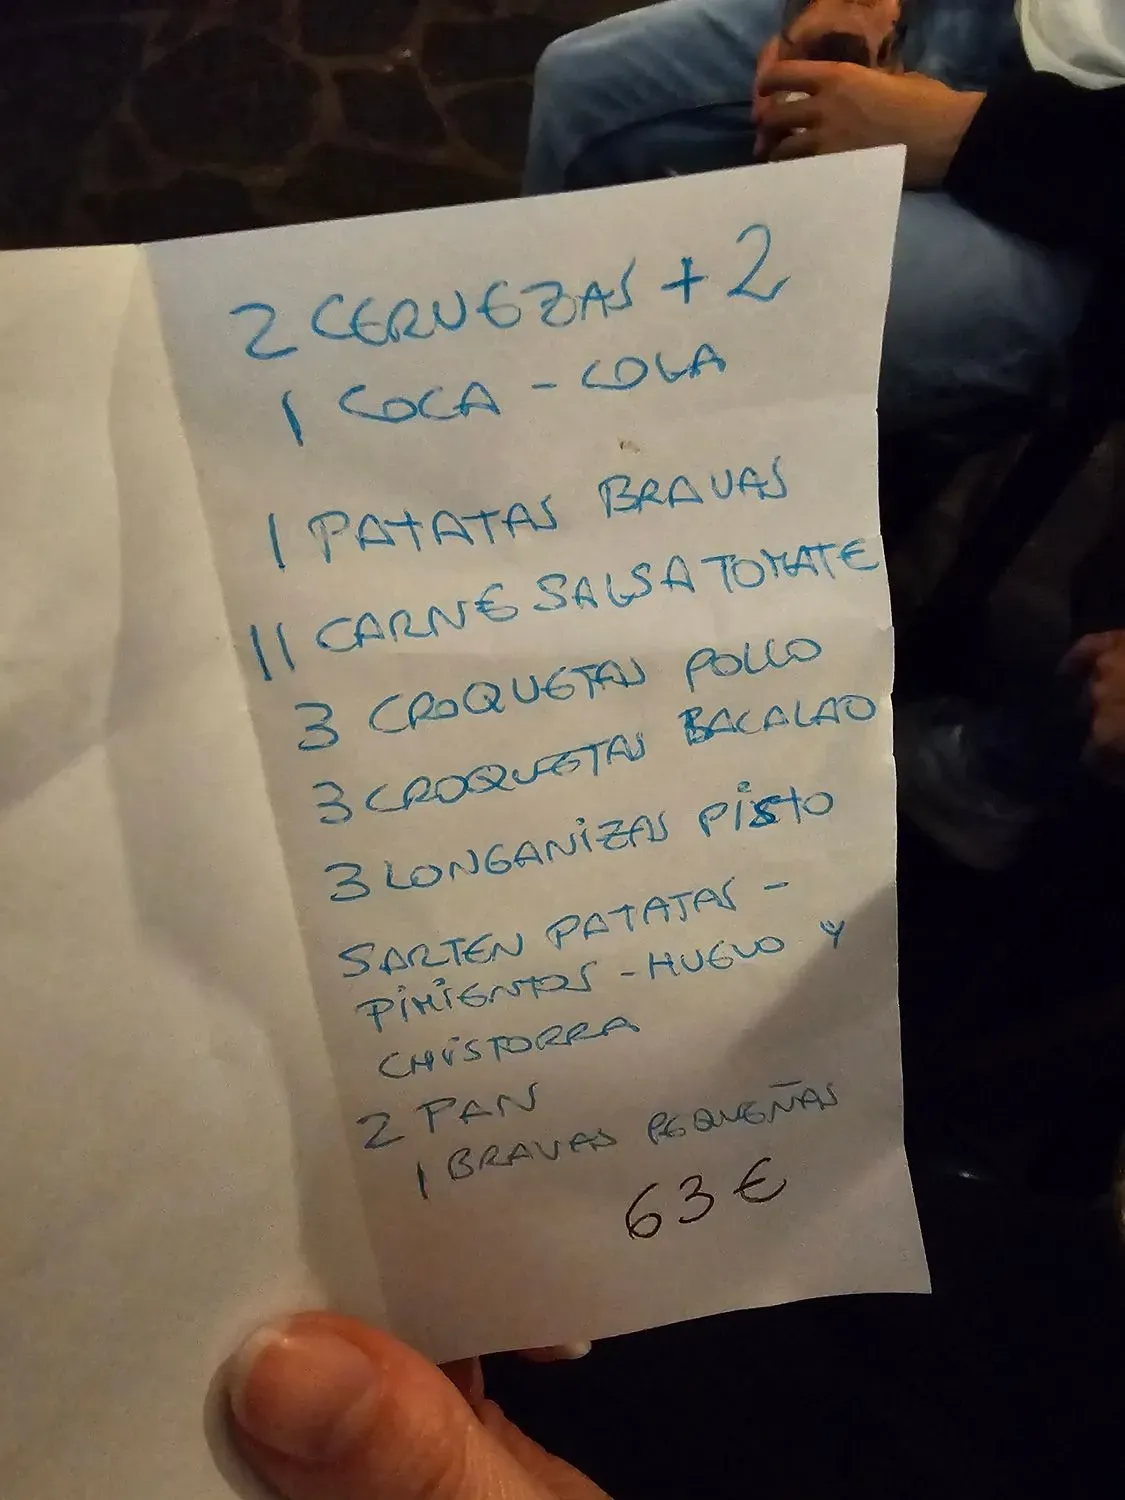 2 CERVEZAS + 2
1 COCA - COLA
1 PATATAS BRAVAS
11 CARNE SALSA TOMATE
3 CROQUETAS POLLO
3 CROQUETAS BACALAO
3 LONGANIZAS PISTO
SARTEN PATATAS -
PIMIENTOS - HUEVO Y
CHISTORRA
2 PAN
1 BRAVAS PEQUEÑAS
63 €